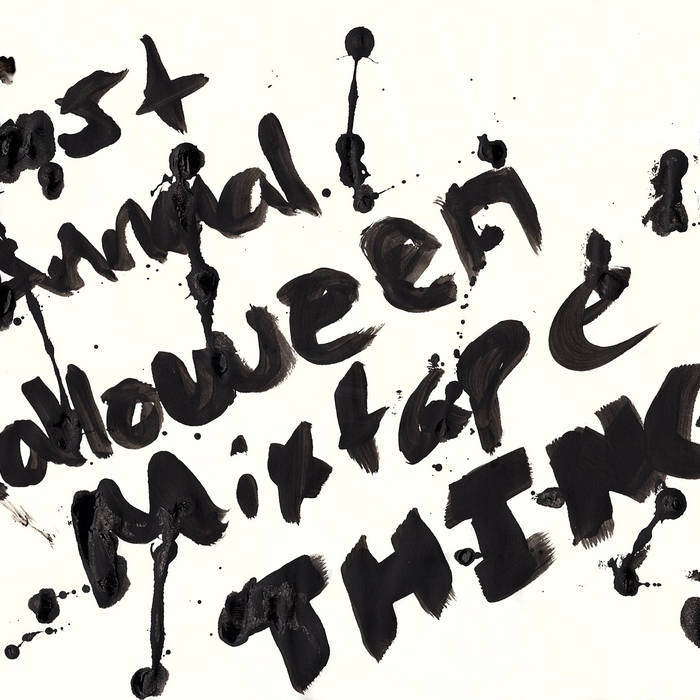 st
Annual
alloween
Mixtape
THING